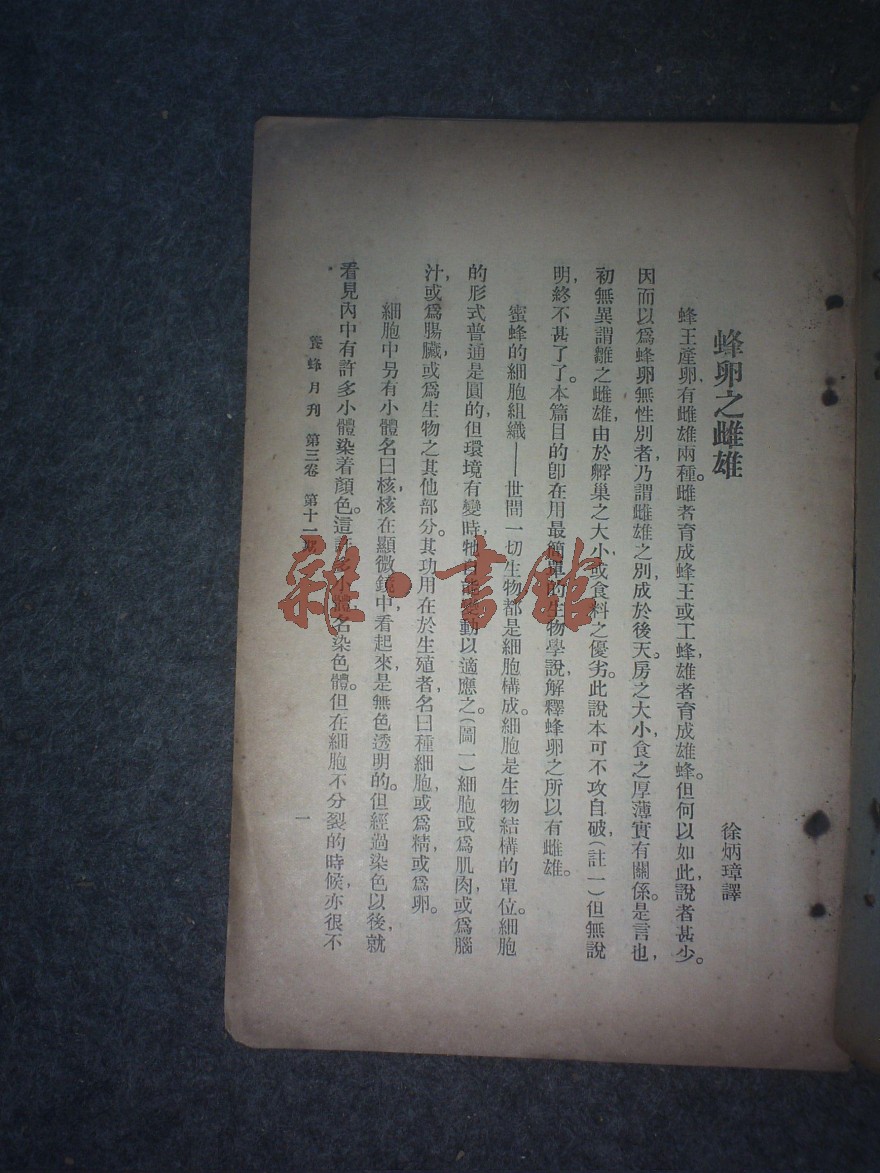 蜂卵之雌雄
徐炳璋譯
蜂王產卵,有雌雄兩種。雌者育成蜂王或工蜂,雄者育成雄蜂。但何以如此,說者甚少。
因而以爲蜂卵無性別者,乃謂雌雄之別,成於後天。房之大小,食之厚薄,實有關係。是言也,
初無異謂雛之雌雄,由於孵巢之大小,或食料之優劣。此說本可不攻自破,(註一)但無說
明,終不甚了了。本篇目的,卽在用最簡單的生物學說,解釋蜂卵之所以有雌雄。
蜜蜂的細胞組織——世間一切生物都是細胞構成。細胞是生物結構的單位。細胞
的形式普通是圓的,但環境有變時,牠自能變動以適應之。(圖一)細胞或爲肌肉,或爲腦
汁,或爲腸臟,或爲生物之其他部分。其功用在於生殖者,名曰種細胞,或爲精,或爲卵。
細胞中另有小體名曰核,核在顯微鏡中,看起來,是無色透明的。但經過染色以後,就
看見內中有許多小體染着顏色。這許多小體,名染色體。但在細胞不分裂的時候,亦很不
養蜂月刊 第三卷 第十一期
一
雜·書館